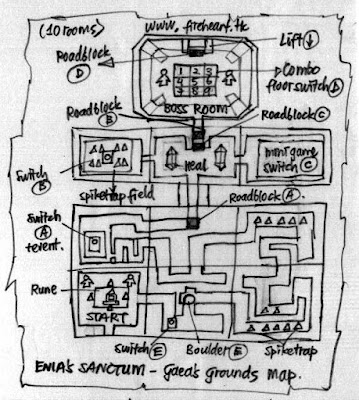 (10 rooms)
www.fireheart.tk
Roadblock
D
Lift ↓
1 2 3
4 5 6
7 8 9
Combo
floorswitch D
BOSS ROOM
Roadblock
B
Roadblock C
Heal
mini game
switch C
Switch
B
spiketrap field
Roadblock A.
Switch
A
Rune
START
Switch E
Boulder E
Spiketrap
ENIA'S SANCTUM - Gaea's Grounds Map.